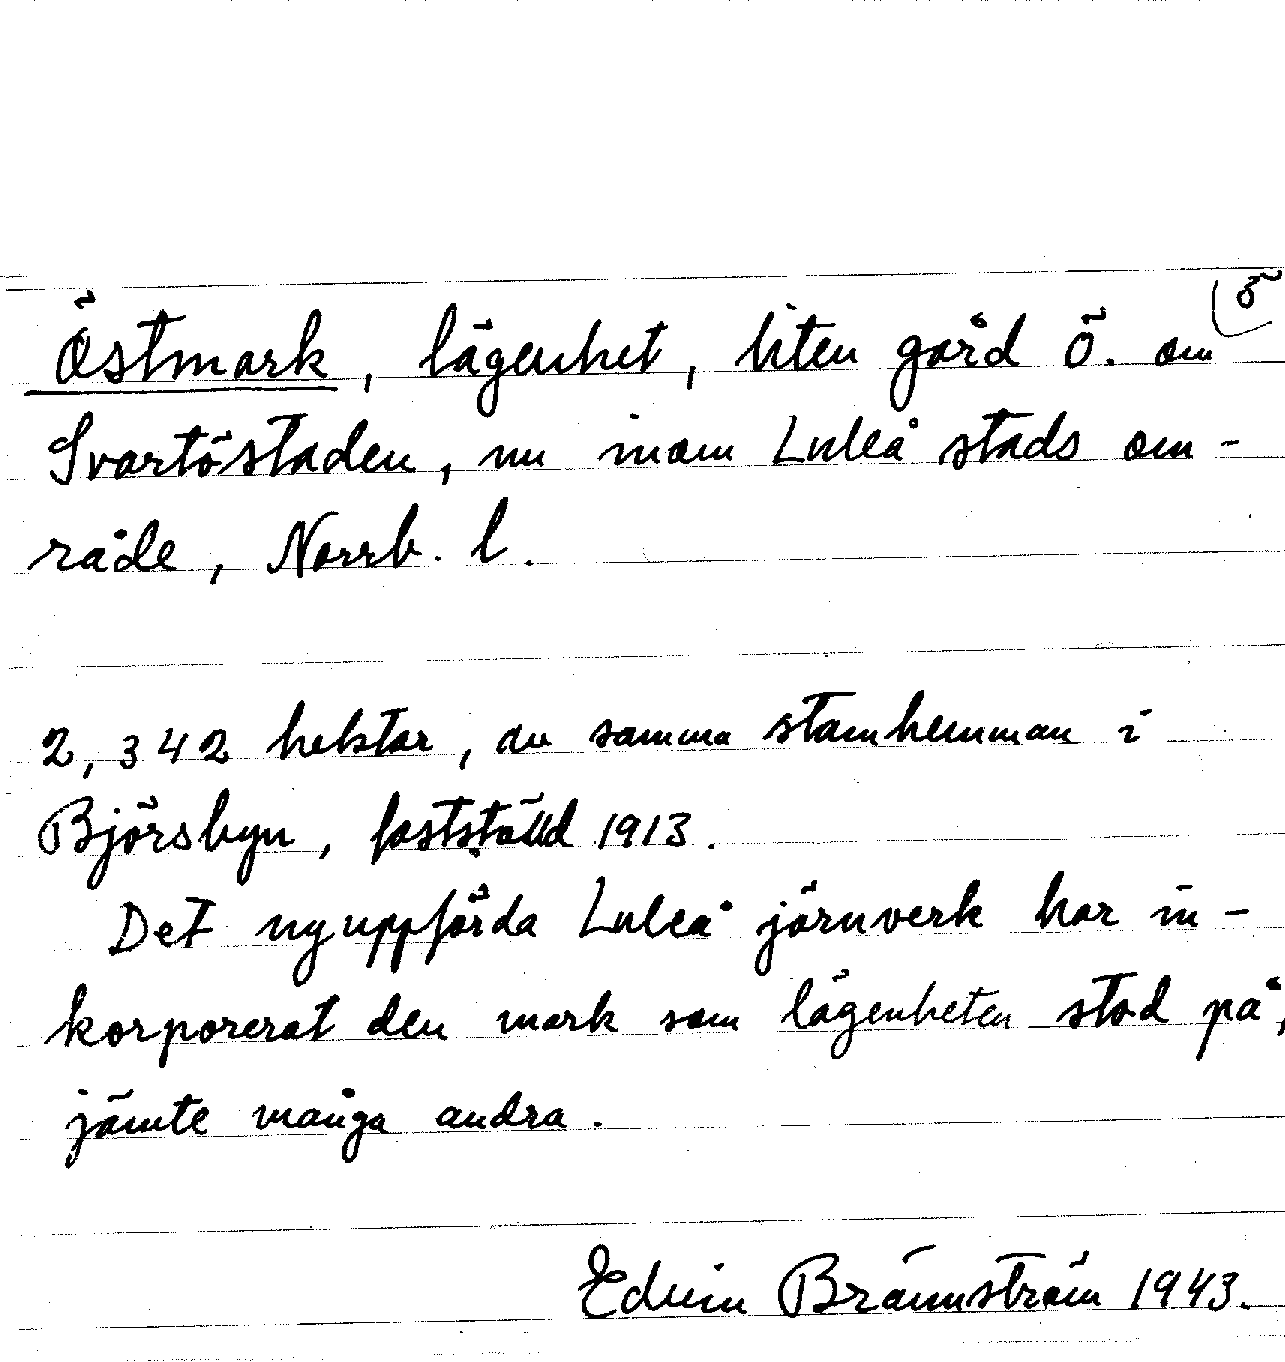 ö
Östmark, lägenhet, liten gård ö. om
Svartöstaden, nu inom Luleå stads om-
råde, Norrb. l.
2,342 hektar, av samma stamhemman i
Björsbyn, fastställd 1913.
Det nyuppförda Luleå järnverk har in-
korporerat den mark som lägenheten stod på,
jämte många andra.
Edvin Brännström 1943.